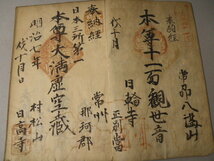 奉納経
常州八溝山
本尊十一面観世音
日輪寺
戊十月
奉納経
日本三所第一
本尊大満虚空蔵
常州
那珂郡
村松山
日高寺
明治七年
戌十月日